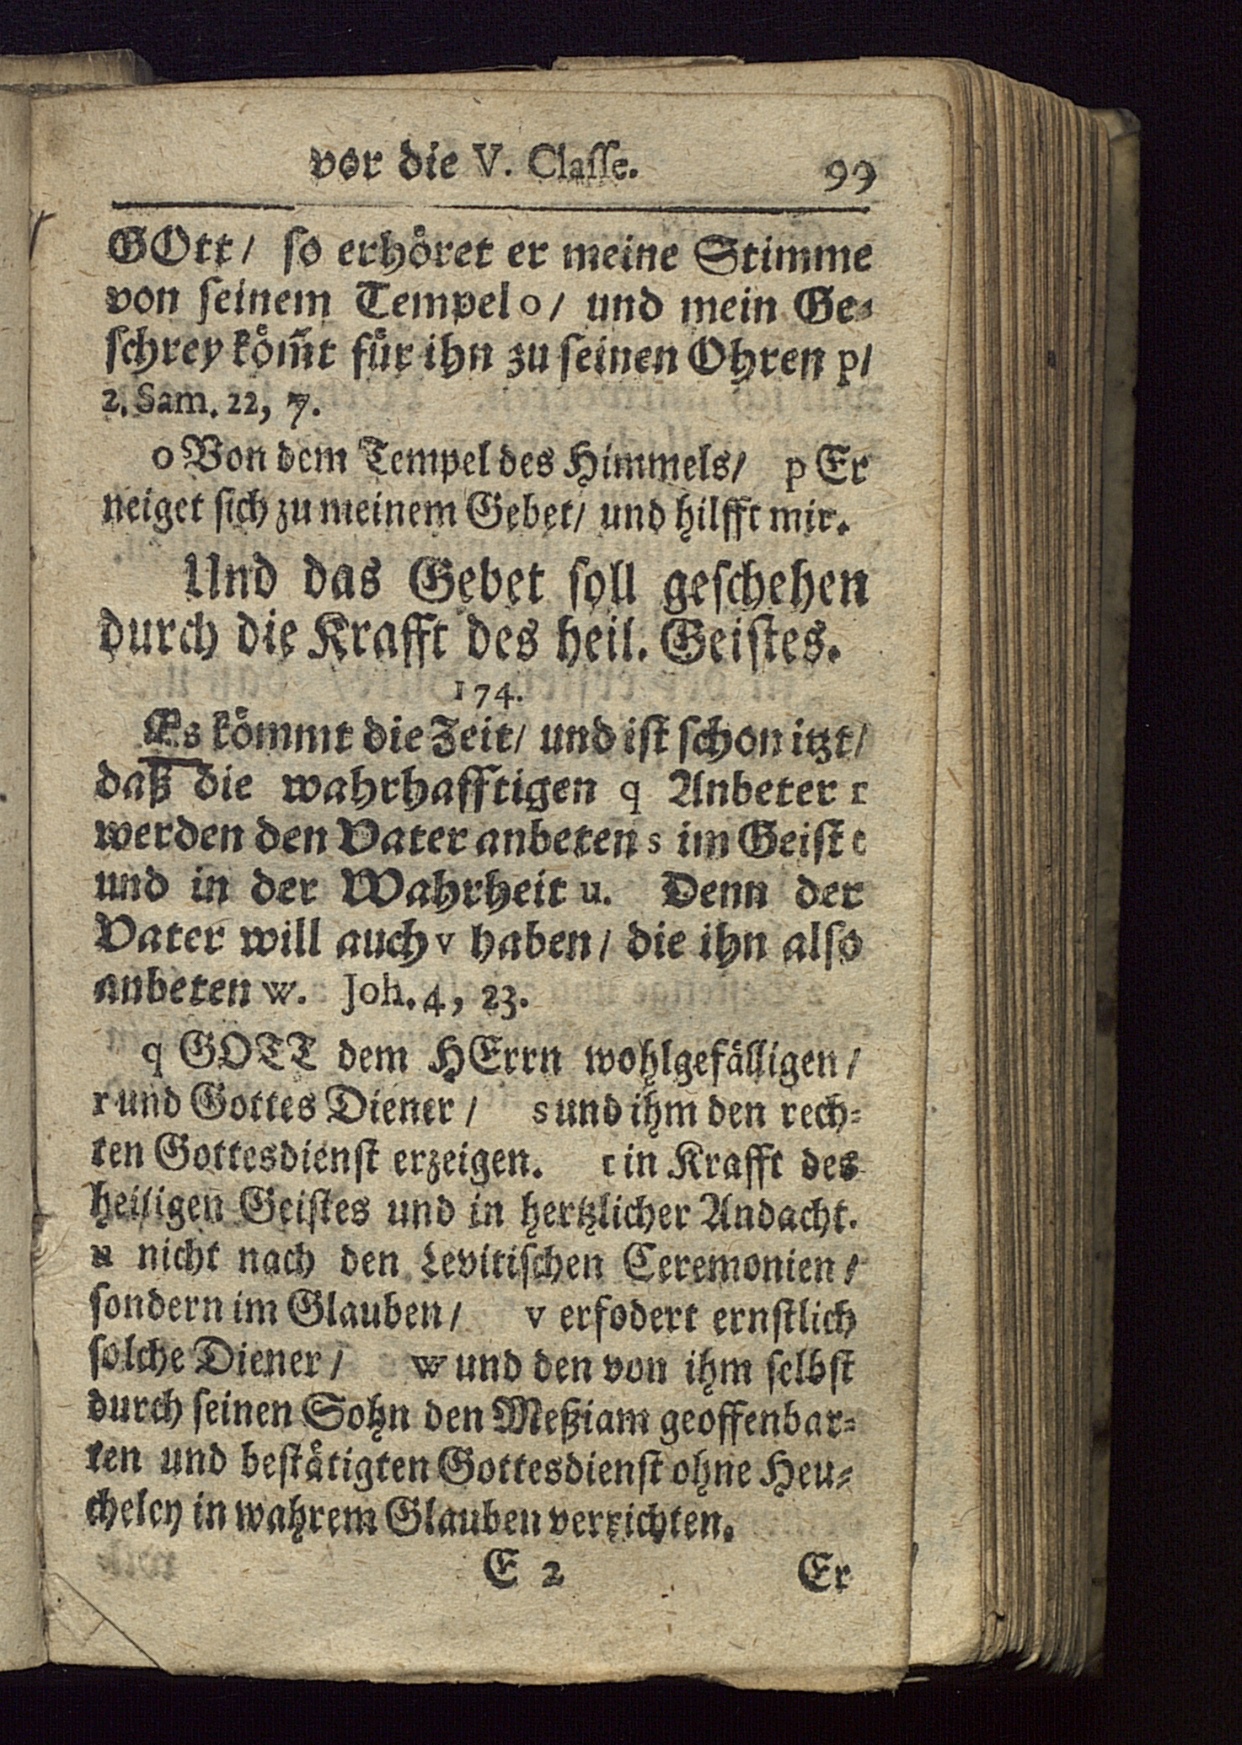 vor die V. Classe. 99
GOtt/ so erhöret er meine Stimme
von seinem Tempel o/ und mein Ge-
schrey köm̃t für ihn zu seinen Ohren p/
2. Sam. 22, 7.
o Von dem Tempel des Himmels/ p Er
neiget sich zu meinem Gebet/ und hilfft mir.
Und das Gebet soll geschehen
durch die Krafft des heil. Geistes.
174.
Es kömmt die Zeit/ und ist schon itzt/
daß die wahrhafftigen q Anbeter r
werden den Vater anbeten s im Geist t
und in der Wahrheit u. Denn der
Vater will auch v haben/ die ihn also
anbeten w. Joh. 4, 23.
q GOTT dem HErrn wohlgefälligen/
r und Gottes Diener/ s und ihm den rech-
ten Gottesdienst erzeigen. t in Krafft des
heiligen Geistes und in hertzlicher Andacht.
u nicht nach den Levitischen Ceremonien/
sondern im Glauben/ v erfodert ernstlich
solche Diener/ w und den von ihm selbst
durch seinen Sohn den Meßiam geoffenbar-
ten und bestätigten Gottesdienst ohne Heu-
cheley in wahrem Glauben verrichten.
E 2 Er